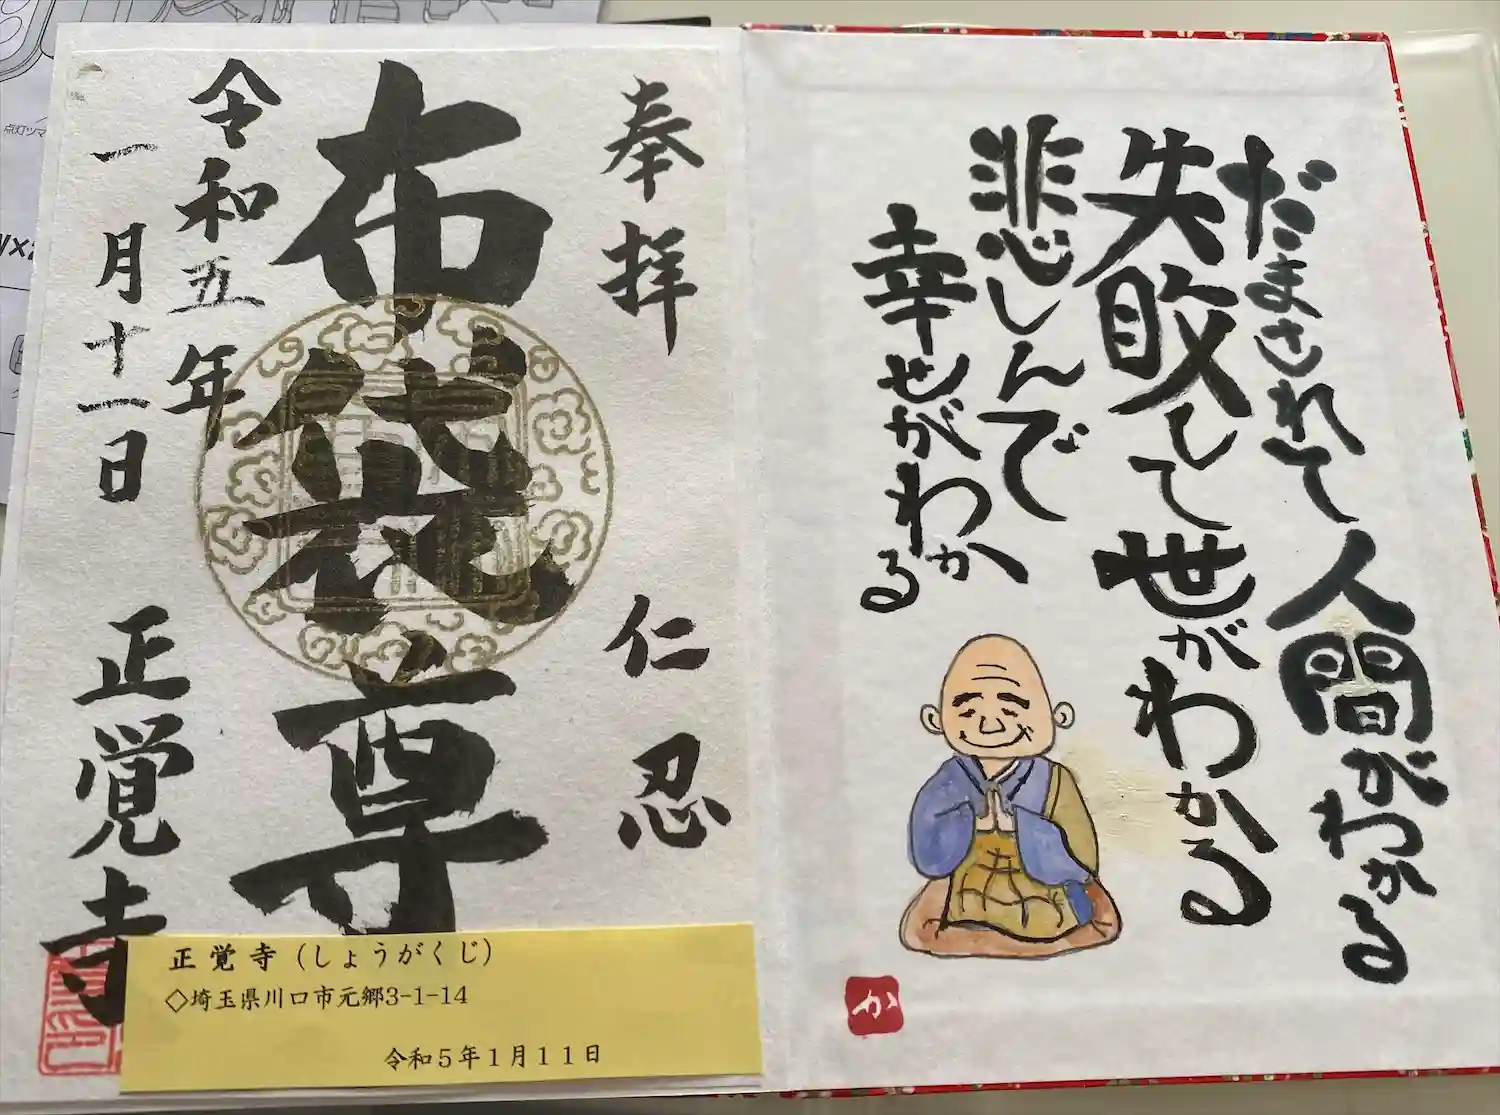 だまされて人間がわかる
失敗して世がわかる
悲しんで
幸せがわかる
か
奉拝
仁 忍
布袋尊
令和五年
一月十一日
正覚寺
正覚寺（しょうがくじ）
◇埼玉県川口市元郷3-1-14
令和５年１月１１日
点灯ツマ